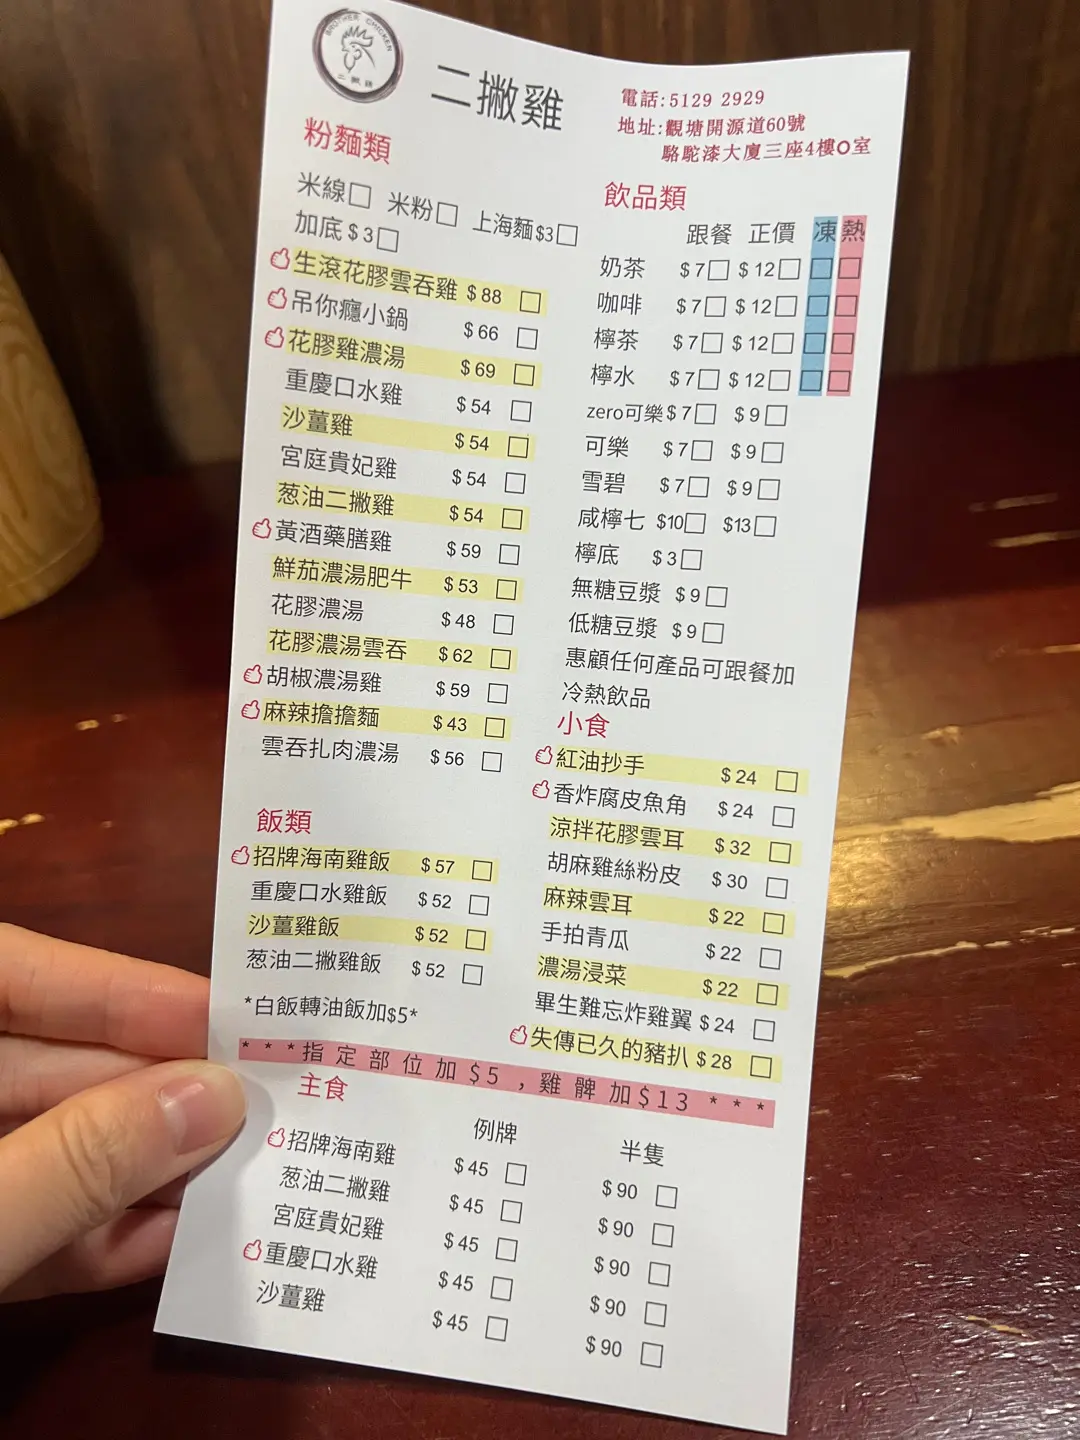 BROTHER CHICKEN
二撇雞
二撇雞
電話:5129 2929
地址:觀塘開源道60號
駱駝漆大廈三座4樓O室
粉麵類
米線□ 米粉□ 上海麵$3□
加底$3□
生滾花膠雲吞雞 $88 □
吊你癮小鍋 $66 □
花膠雞濃湯 $69 □
重慶口水雞 $54 □
沙薑雞 $54 □
宮庭貴妃雞 $54 □
葱油二撇雞 $54 □
黃酒藥膳雞 $59 □
鮮茄濃湯肥牛 $53 □
花膠濃湯 $48 □
花膠濃湯雲吞 $62 □
胡椒濃湯雞 $59 □
麻辣擔擔麵 $43 □
雲吞扎肉濃湯 $56 □
飯類
招牌海南雞飯 $57 □
重慶口水雞飯 $52 □
沙薑雞飯 $52 □
葱油二撇雞飯 $52 □
*白飯轉油飯加$5*
飲品類
跟餐 正價 凍 熱
奶茶 $7□ $12□ □ □
咖啡 $7□ $12□ □ □
檸茶 $7□ $12□ □ □
檸水 $7□ $12□ □ □
zero可樂$7□ $9□
可樂 $7□ $9□
雪碧 $7□ $9□
咸檸七 $10□ $13□
檸底 $3□
無糖豆漿 $9□
低糖豆漿 $9□
惠顧任何產品可跟餐加
冷熱飲品
小食
紅油抄手 $24 □
香炸腐皮魚角 $24 □
涼拌花膠雲耳 $32 □
胡麻雞絲粉皮 $30 □
麻辣雲耳 $22 □
手拍青瓜 $22 □
濃湯浸菜 $22 □
畢生難忘炸雞翼 $24 □
失傳已久的豬扒 $28 □
***指定部位加$5,雞髀加$13***
主食
例牌 半隻
招牌海南雞 $45 □ $90 □
葱油二撇雞 $45 □ $90 □
宮庭貴妃雞 $45 □ $90 □
重慶口水雞 $45 □ $90 □
沙薑雞 $45 □ $90 □